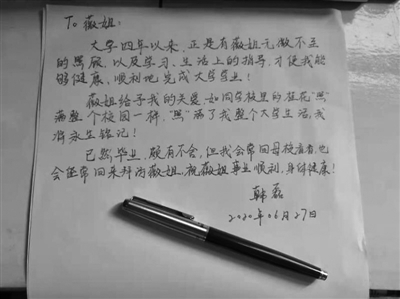 To 薇姐:
大学四年以来,正是有薇姐无微不至
的照顾,以及学习、生活上的指导,才使我能
够健康、顺利地完成大学学业!
薇姐给予我的关爱如同学校里的桂花"照"
满整个校园一样,"照"满了我整个大学生活,我
将永生铭记!
已然毕业,颇有不舍,但我会常回母校看看,也
会经常回来拜访薇姐,祝薇姐事业顺利,身体健康!
韩磊
2020年06月27日